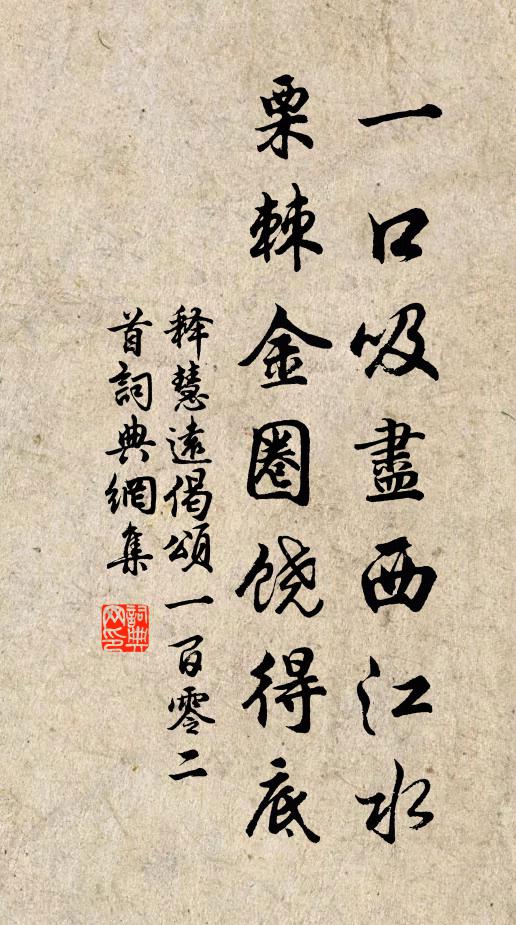 一口吸盡西江水
栗棘金圈饶得底
释慧遠偈頌一百零二
首詞典網集
詞典网印